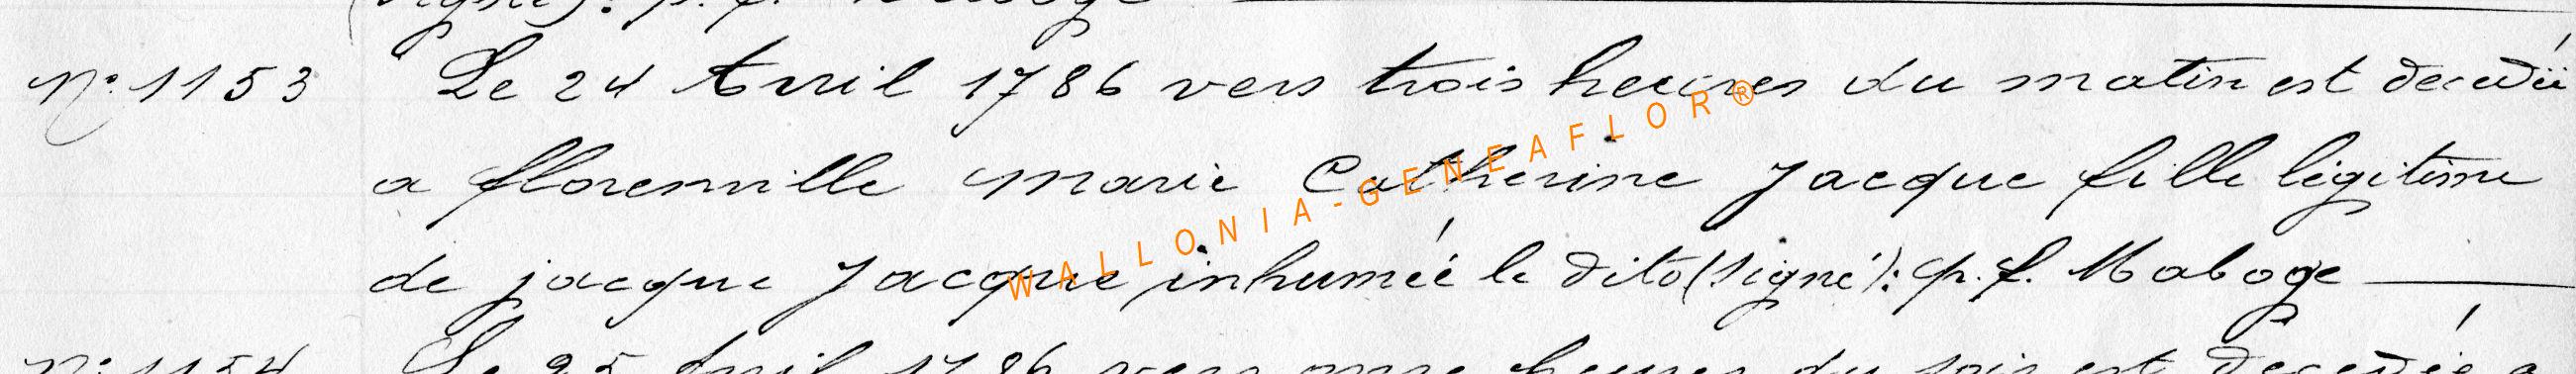 (signé): p. f. Maboge
N° 1153 Le 24 Avril 1786 vers trois heures du matin est decedée
a florenville marie Catherine Jacque fille légitime
de jacque Jacque inhumée le dito (signé): p. f. Maboge
N° 1154 Le 25 Avril 1786 vers onze heures du soir est decedée a
WALLONIA-GENEAFLOR®